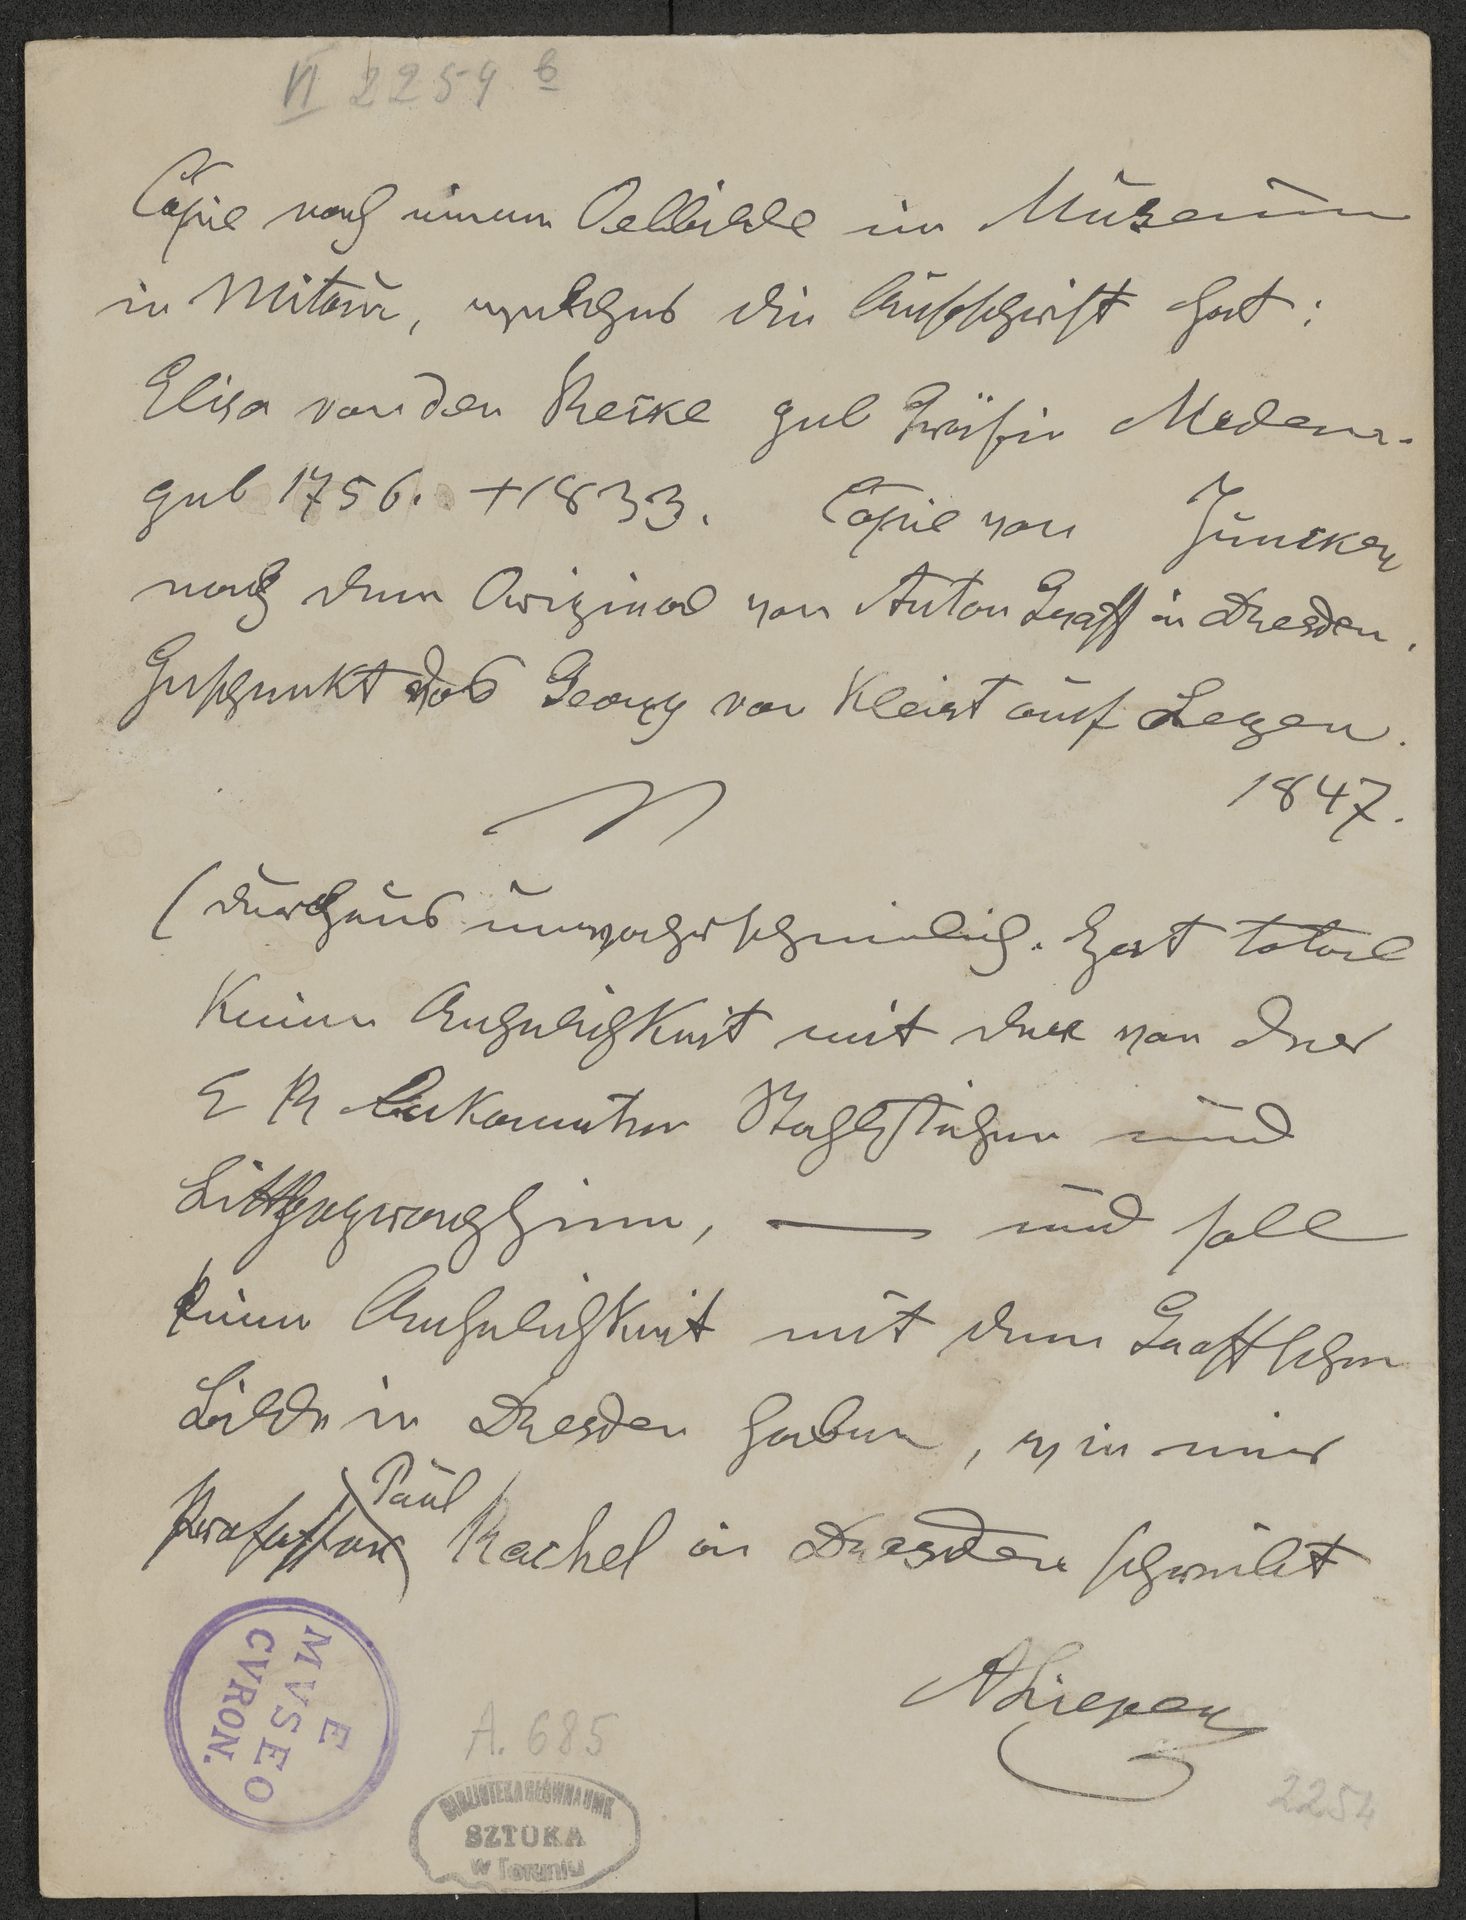 VI 2254 b
Copie nach einem Oelbilde im Museum
in Mitau, welches die Aufschrift hat:
Elisa von der Recke geb Gräfin Medem.
geb 1756. +1833. Copie von
nach dem Original von Anton Graff in Dresden.
Geschenkt des Georg von Kleist auf Legen.
1847.
(durchaus unwahrscheinlich. Hat total
keine Aehnlichkeit mit den von der
E R bekannten Stahlstichen und
Lithographien, — und soll
keine Aehnlichkeit mit dem Graffschen
Bilde in Dresden haben, wie mir
Professor Paul Rachel in Dresden schreibt
E
MVSEO
CVRON.
A. 685
BIBLIOTEKA GŁÓWNA UMK
SZTUKA
w Toruniu
2254